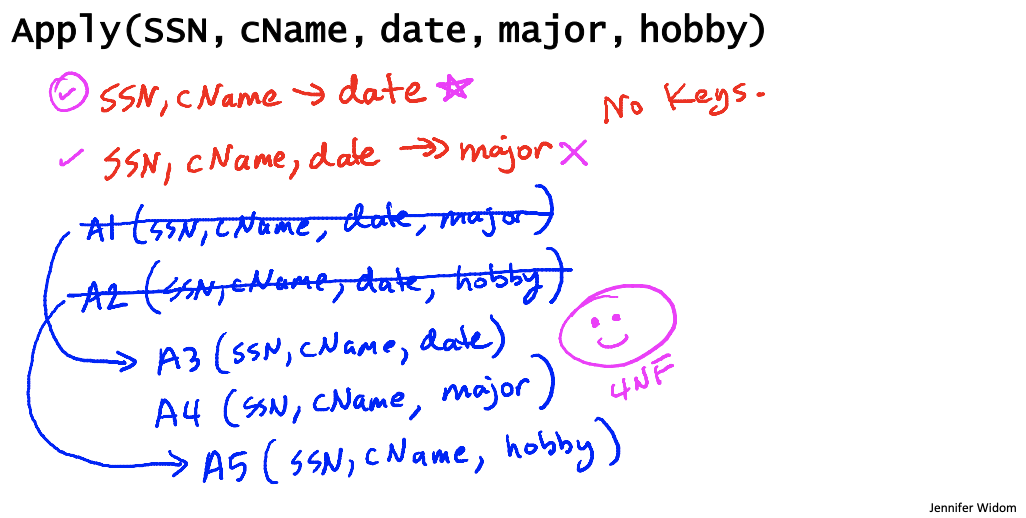 Apply(SSN, cName, date, major, hobby)
SSN, cName → date
No Keys.
SSN, cName, date ↠ major
A1 (SSN, cName, date, major)
A2 (SSN, cName, date, hobby)
A3 (SSN, cName, date)
4NF
A4 (SSN, cName, major)
A5 (SSN, cName, hobby)
Jennifer Widom